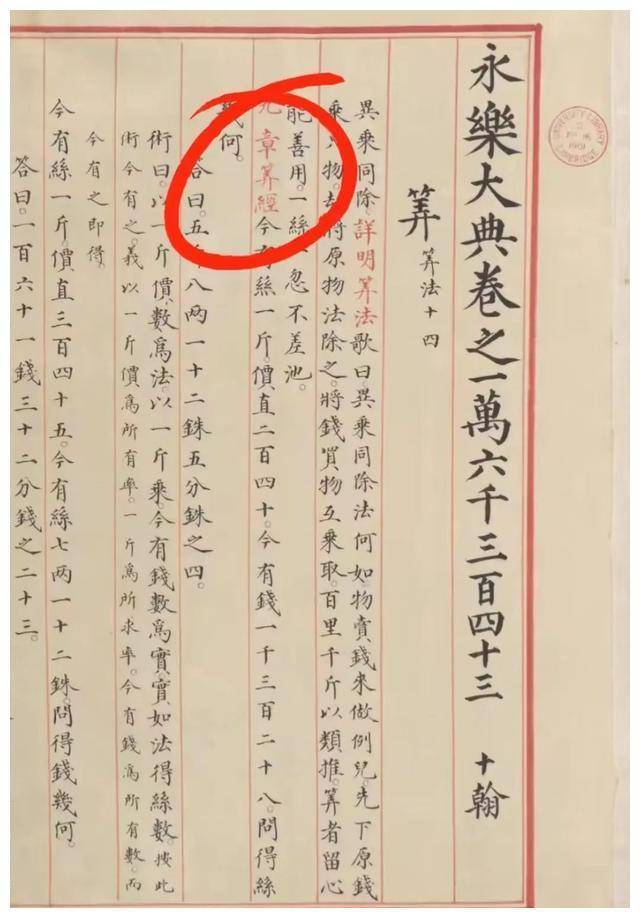 永樂大典卷之一萬六千三百四十三 十翰
筭 筭法十四
異乘同除。詳明筭法歌曰。異乘同除法何如。物賣錢來做例兒。先下原錢
乘只物。却將原物法除之。將錢買物互乘取。百里千斤以類推。筭者留心
能善用。一絲一忽不差池。
九章筭經今有絲一斤。價直二百四十。今有錢一千三百二十八。問得絲
幾何。
答曰。五斤八兩一十二銖五分銖之四。
術曰。以一斤價數爲法。以一斤乘今有錢數爲實。實如法得絲數。按此
術今有之。義以一斤價爲所有率。一斤爲所求率。今有錢爲所有數。而
今有之即得。
今有絲一斤。價直三百四十五。今有絲七兩一十二銖。問得錢幾何。
答曰。一百六十一錢三十二分錢之二十三。
UNIVERSITY LIBRARY
1901
CAMBRIDGE